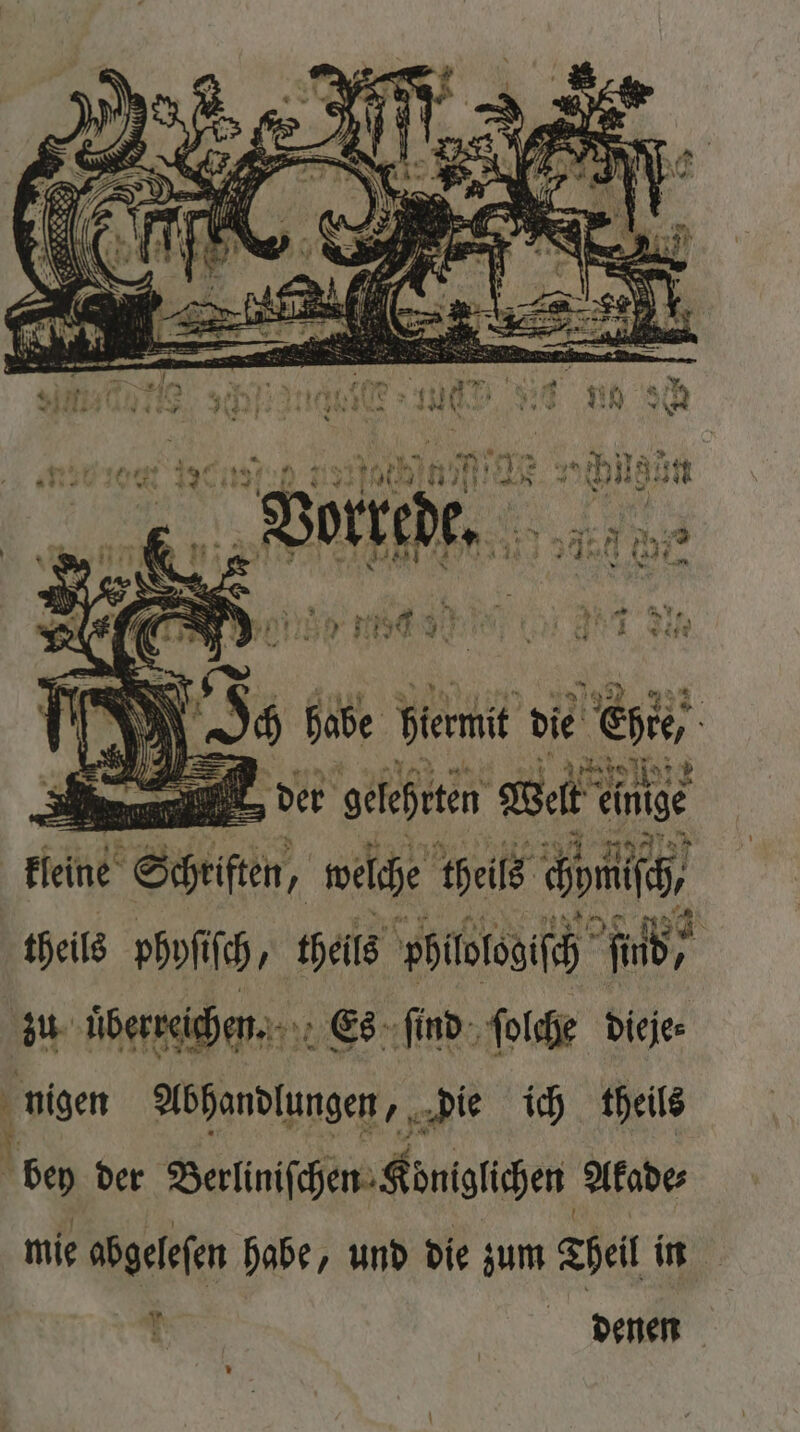 Vorrede.
Ich habe hiermit die Ehre,
der gelehrten Welt einige
kleine Schriften, welche theils chymiſch,
theils phyſiſch, theils philologiſch ſind,
zu uͤberreichen. Es ſind ſolche dieje⸗
nigen Abhandlungen, die ich theils
bey der Berliniſchen Koͤniglichen Akade⸗
mie abgeleſen habe, und die zum Theil in
denen